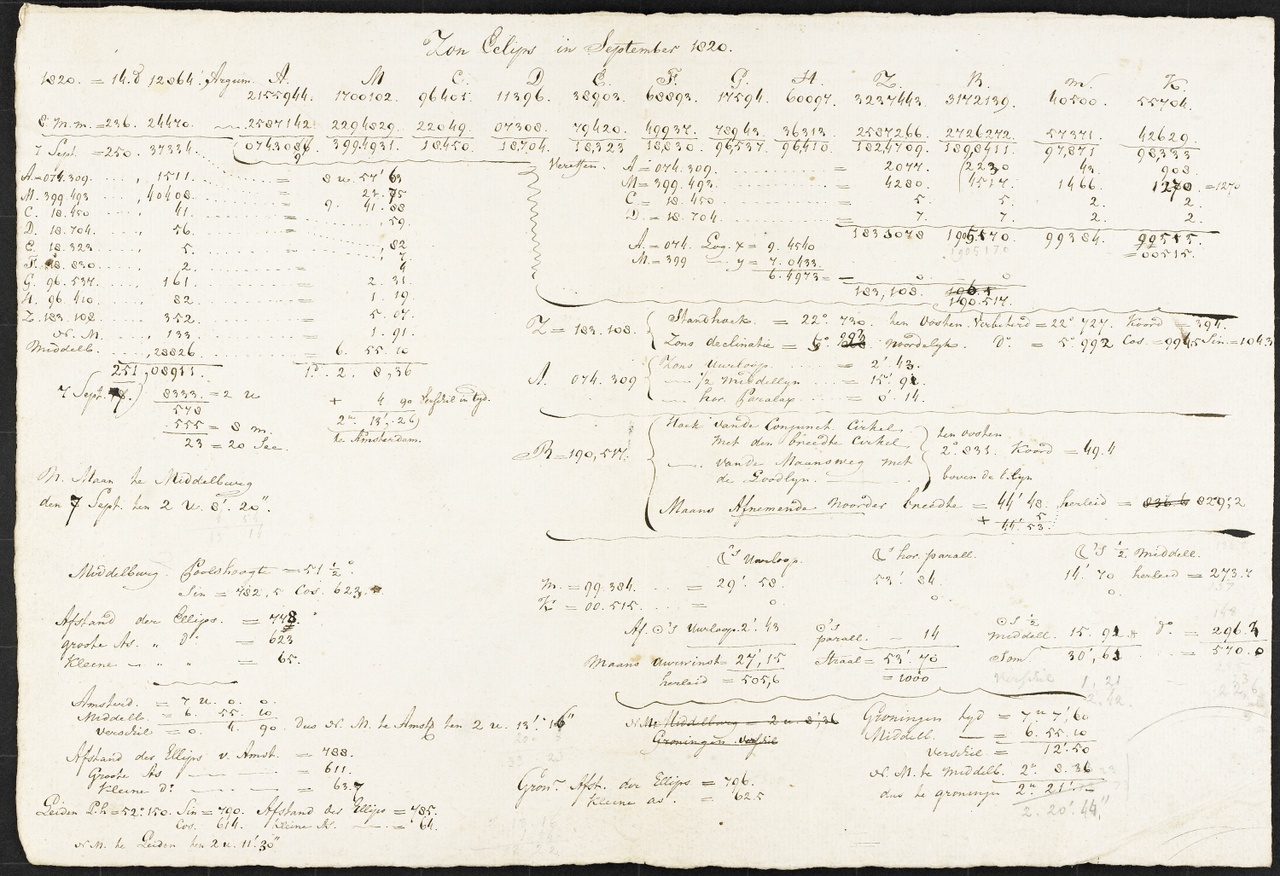 Zon Eclips in September 1820.
1820. = 14.d 12864. Argum. A. M C. D. E. F. G. H. Z. R. m. K.
2155944. 1700102. 96401. 11396. 38903. 68893. 17594. 60097. 3237443. 3172139. 40500. 55704.
8 M.m. = 236. 24470 2587142 2294829. 22049. 07308. 79420. 49937. 78943. 36313. 2587266. 2726272. 57371. 42629
7 Sept. = 250. 37334 0743086 3994931. 18450. 18704. 18323 18830. 96537. 96410. 1824709. 1898411 97871 98333
Vereffen. A = 074.309. = 2077. 2230 43. 908.
M = 399.493. = 4280. 4517. 1466. 1270 = 1270
C = 18.450 = 5. 5. 2. 2.
D. = 18.704. = 7. 7. 2. 2.
1833078 1905170. 99384. 99515.
= 00515.
A = 074. Log. x = 9. 4540
M. = 399 — y = 7. 0433
6. 4973 = — 0 0
183,108. 190.517.
A = 074.309 , 1511 = 8 u. 57' 63
M. 399.493 , 40408 23. 75
9. 41. 88
C. 18.450 , 41. = , 59.
D. 18.704. , 56. =
E. 18.323 , 5. , 82
F. 18.830 , 2.
G. 96.537. , 161. 2. 31.
H. 96.410 , 82. 1. 19
Z. 183.108. , 352. 5. 07.
N. M. , 133. 1. 91.
Middelb. , 28826 = 6. 55. 10
251,08911. 1.u 2. 8,36
7 Sept. 8333 = 2 u + 4 90 Verschil in tyd.
578 2u 13'. 26
555 = 8 m. te Amsterdam.
23 = 20 Sec.
N. Maan te Middelburg
den 7 Sept. ten 2 u. 8'. 20".
Z = 183.108. Standhoek = 22°. 730. ten Oosten. Verbeterd = 22° 727. Koord = 394.
Zons declinatie = 5°. 993 Noordelyk. D°. = 5°. 992 Cos. = 9945 Sin = 1043
A. 074.309 Zons Uurloop = 2'. 43.
— 1/2 Middellyn = 15'. 91.
— hor. Paralax = 0'. 14.
R = 190,517. Hoek vande Conjunct Cirkel
met den breedte Cirkel
— vande Maansweg met
de Goodlyn.
ten oosten
2°. 831. Koord = 49.4
boven de E.lyn
Maans Afnemende Noorder breedthe = 44' 48. herleid = 829,2
+ 5
44'. 53.
Middelburg. Poolshoogte = 51 1/2°
Sin = 782,5 Cos. 623.
Afstand der Ellips. = 778.
groote As. " d° " = 623
Kleine — " " = 65.
☾'s Uurloop. ☾'s hor. parall. ☾'s 1/2 Middell.
M. = 99.384. = 29'. 58. 53'. 84. 14'. 70 herleid = 273.7
K = 00.515. = 0. 0. 0.
Af. ☉'s Uurloop. 2'. 43 ☉'s parall. — 14 ☉'s 1/2 middell. 15. 91 d°. = 296.3
Maans uurwinst = 27', 15 Straal = 53'. 70 Som 30', 61 = 570.0
herleid = 505,6 = 1000 Verschil 1, 21
Amsterd. = 7 u. 0. 0.
Middelb. = 6. 55. 10
Verschil = 0. 4. 90. Dus N. M. te Amst. ten 2 u. 13'. 16"
Afstand des Ellips v. Amst. = 788.
Groote As — = 611.
Kleine D°. — = 63.7
Leiden P.h = 52°.150. Sin = 790. Afstand des Ellips = 785.
Cos. 614. Kleine As. — = 64.
N. M. te Leiden ten 2 u. 11'. 30"
N.M. Middelburg = 2 u. 8',36
Groningen Verschil
Gron.n Afst. der Ellips = 796.
Kleine as. = 62.5
Groningen tyd = 7 u 7' 60
Middelb. — = 6. 55. 10
Verschil = 12'. 50
N. M. te middelb. 2u. 8. 36
dus te groningen 2u. 21'. —
2. 20'. 44"